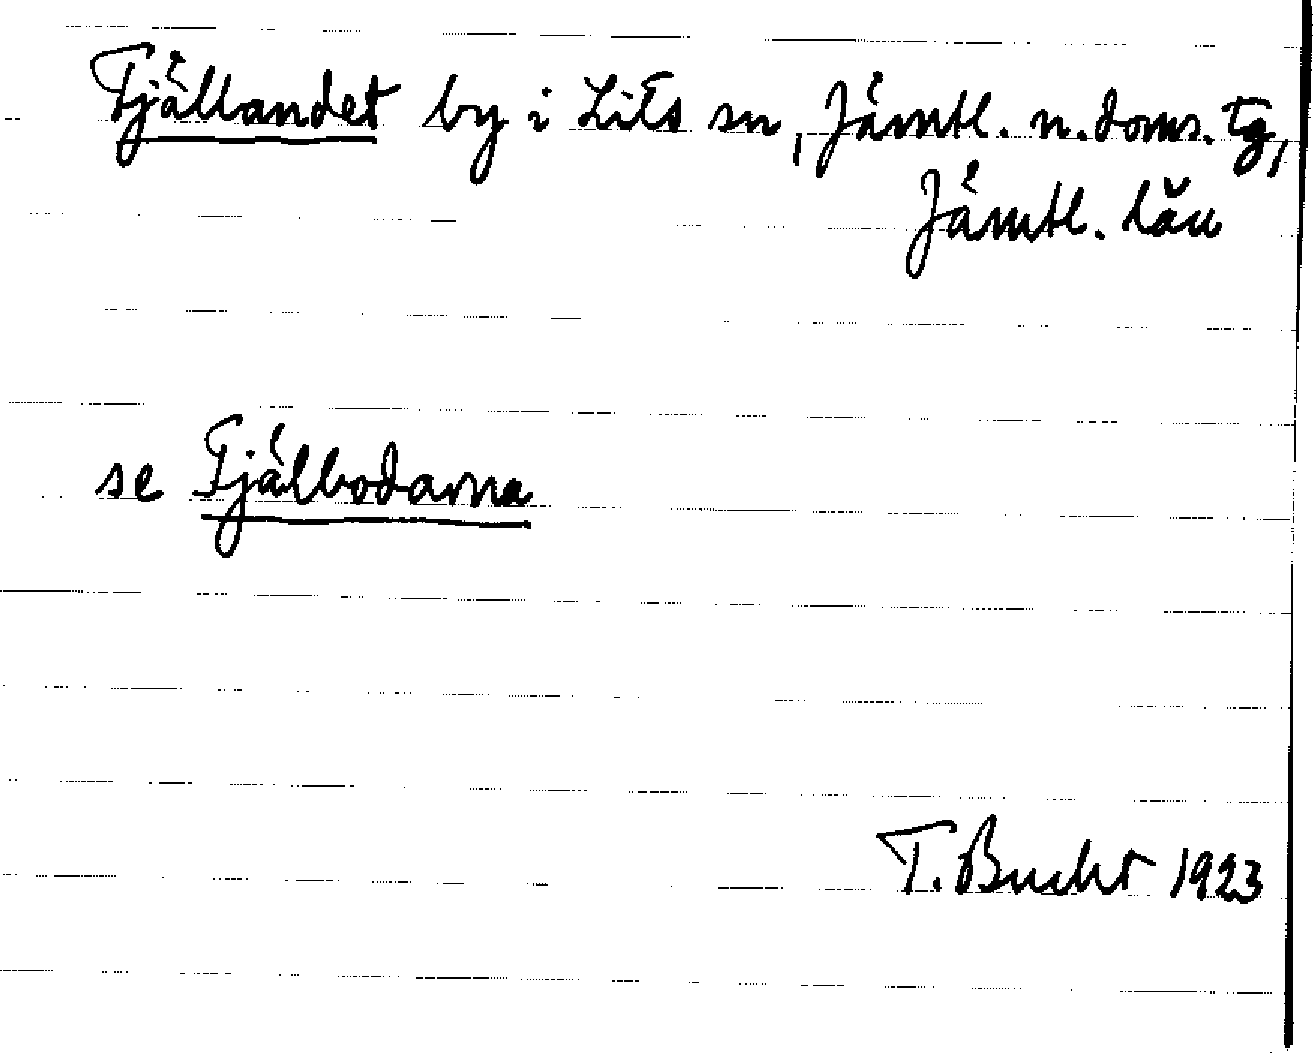 Tjällandet by i Lits sn, Jämtl. n. doms. tg,
Jämtl. län
se Tjälbodarna
T. Bucht 1923